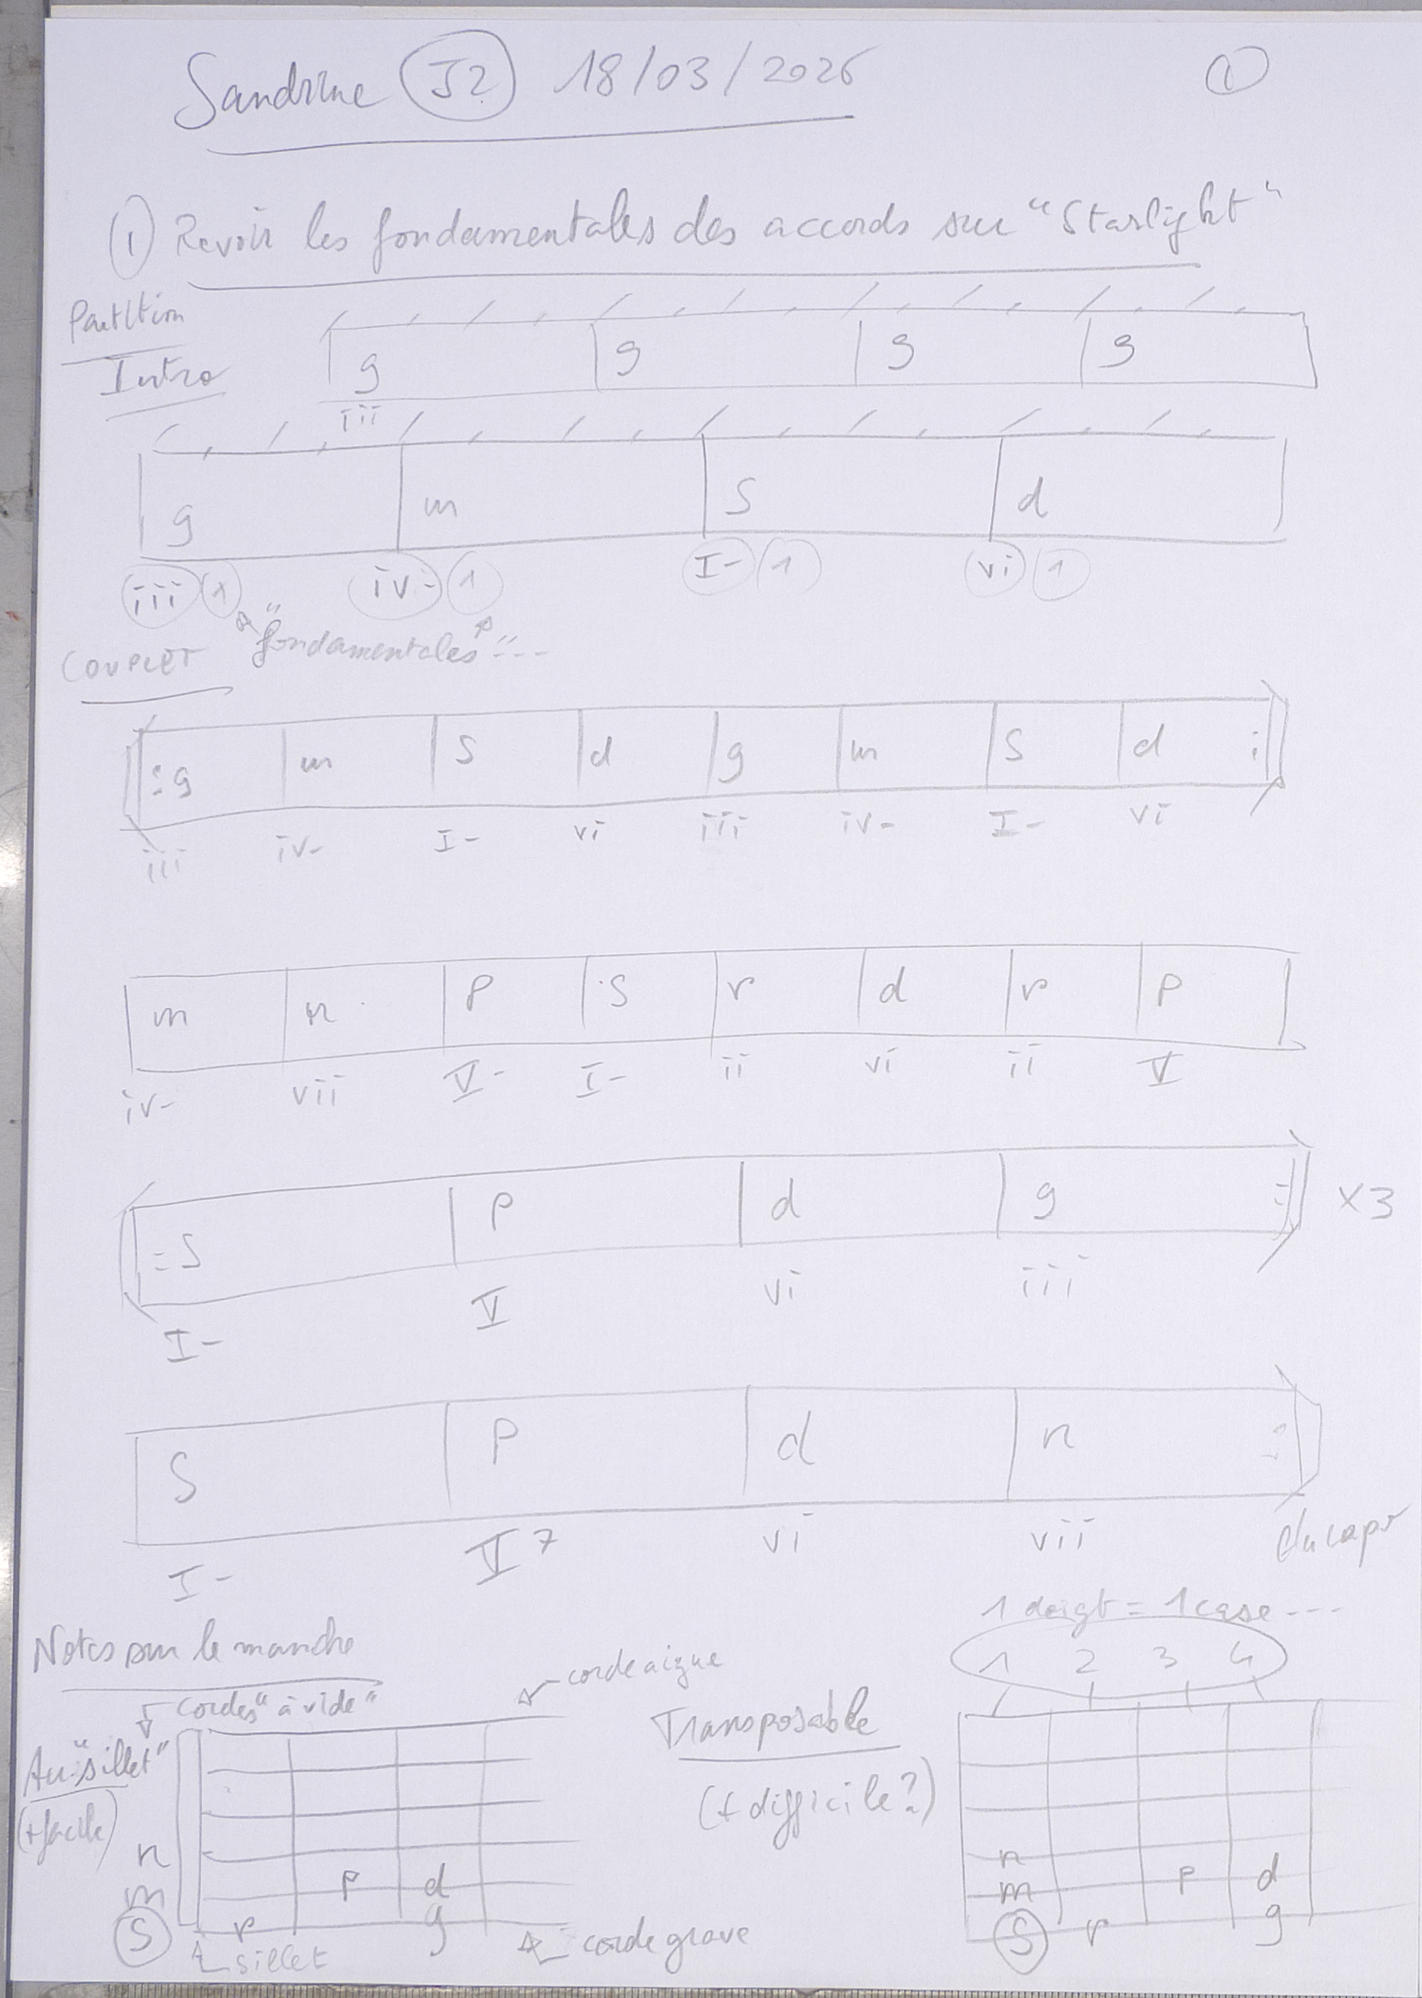 Sandrine J2 18/03/2026 1
1 Revoir les fondamentales des accords sur "Starlight"
Partition
Intro
g g g g
iii
g m S d
iii 1 iv- 1 I- 1 vi 1
"fondamentales"...
COUPLET
: g m S d g m S d :
iii iv- I- vi iii iv- I- vi
m n P S r d r P
iv- vii V- I- ii vi ii V
: S P d g : x3
I- V vi iii
S P d n :
I- V7 vi vii
Da capo
1 doigt = 1 case ...
Notes sur le manche
1 2 3 4
corde aigue
cordes "à vide"
Transposable
Au "sillet"
(+ facile)
(+ difficile?)
n
m P d
S r g
n
m P d
S r g
sillet
corde grave